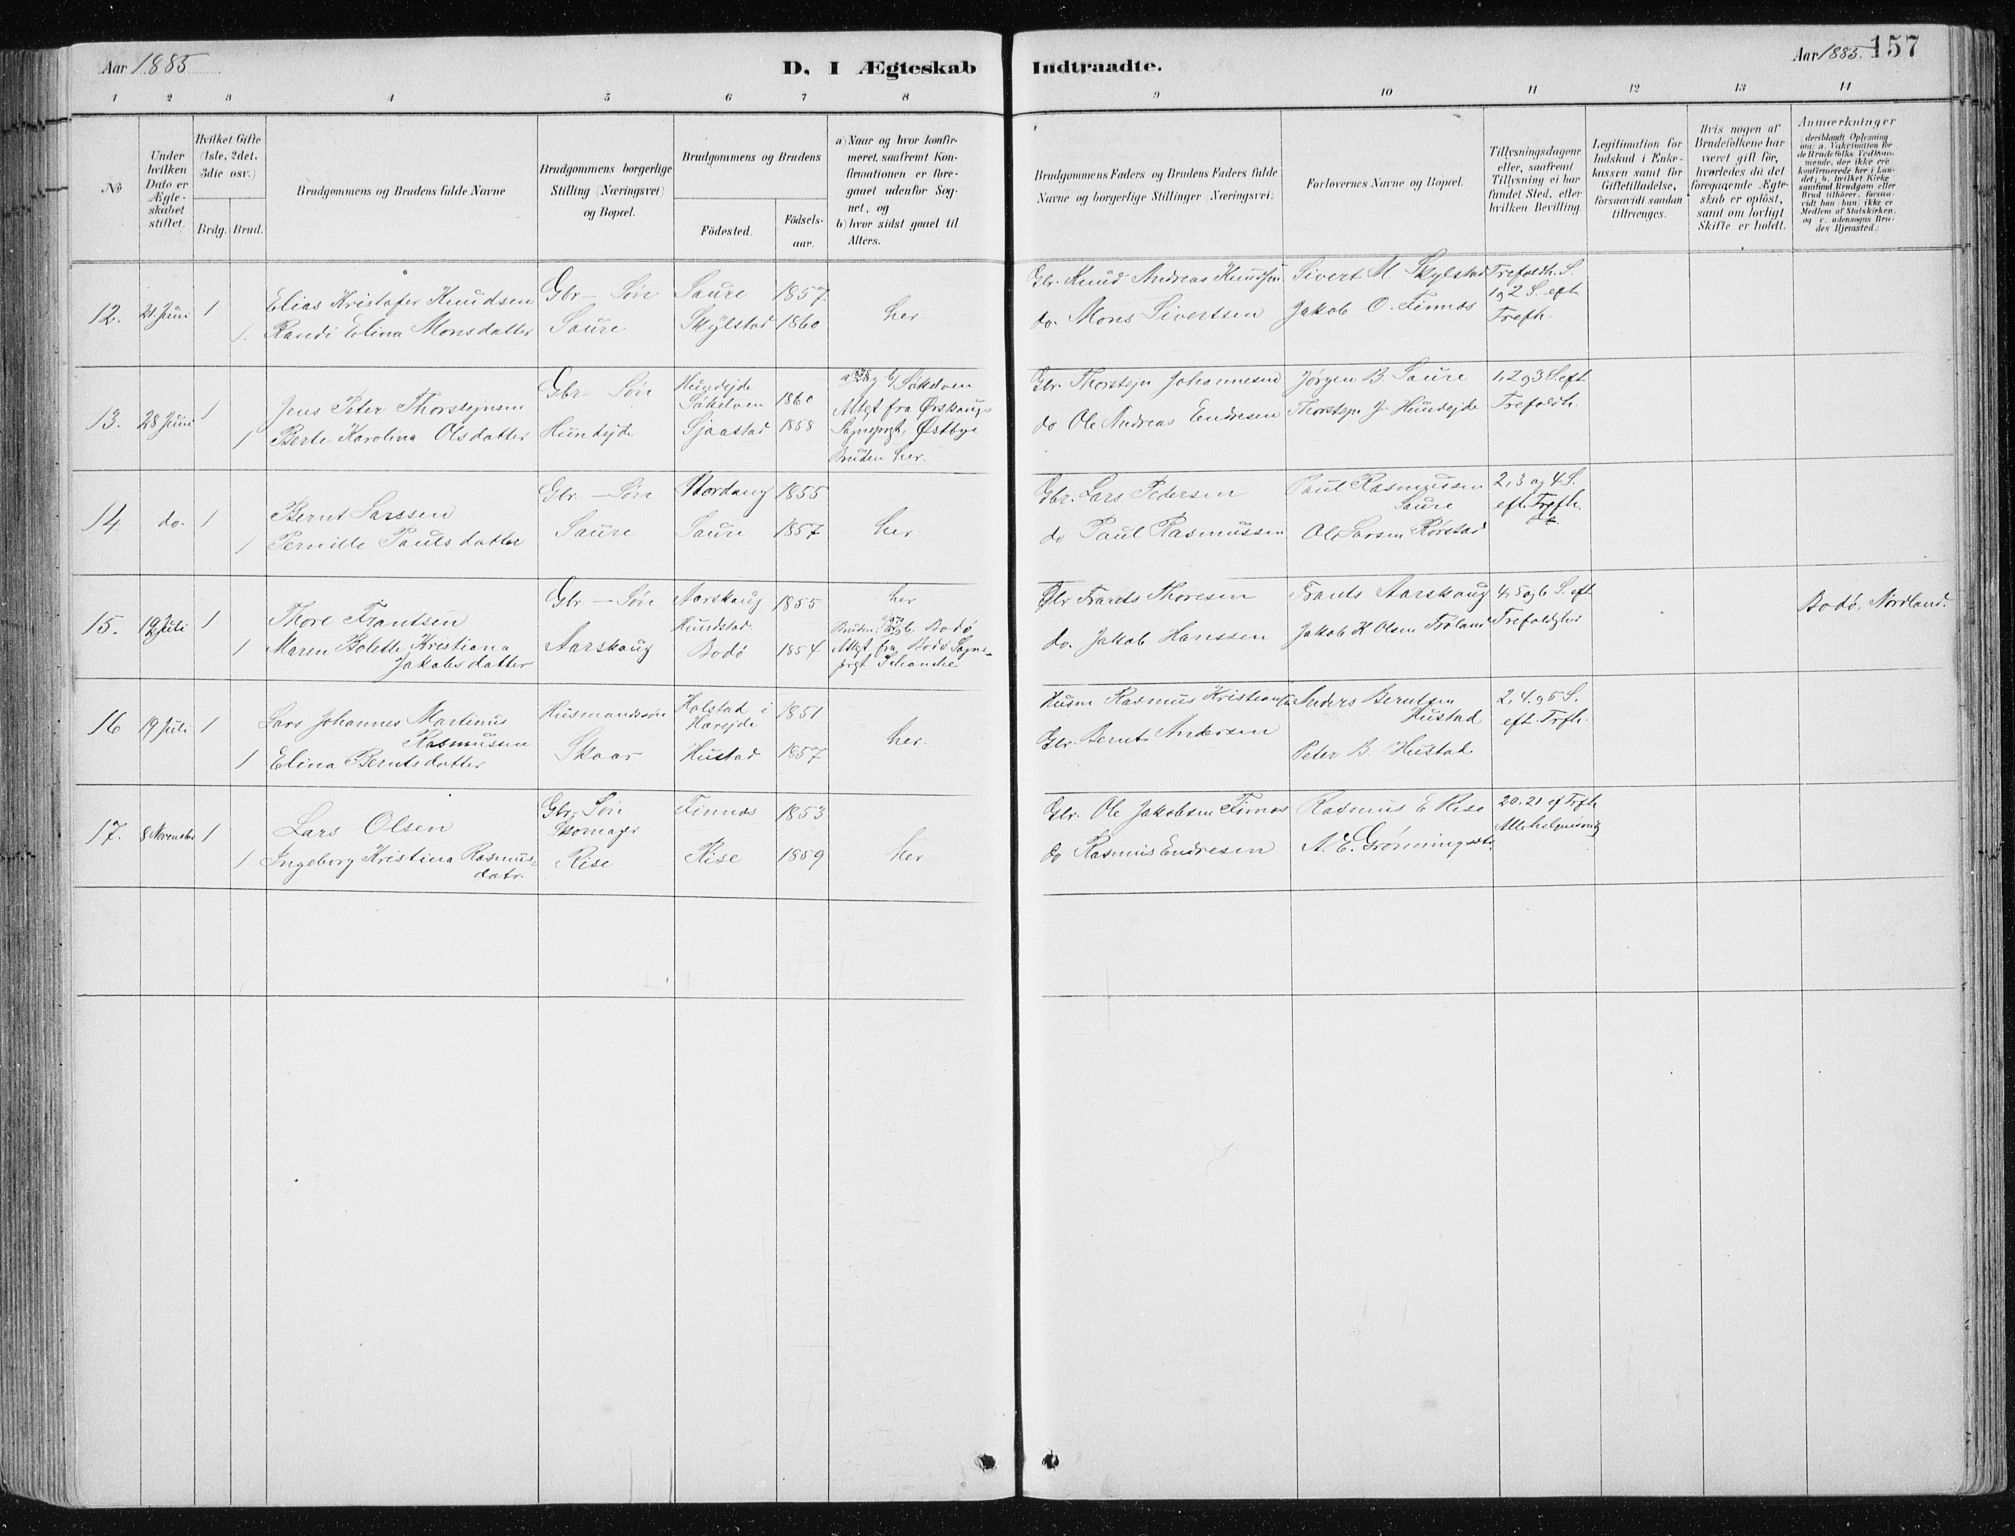 Aar 1885
D. I Ægteskab Indtraadte.
Aar 1885. 157
1 2 3 4 5 6 7 8 9 10 11 12 13 14
No
Under hvilken Dato er Ægteskabet stiftet.
Hvilket Gifte (1ste, 2det, 3die osv.)
Brdg. Brud.
Brudgommens og Brudens fulde Navne
Brudgommens borgerlige Stilling (Næringsvei) og Bopæl.
Brudgommens og Brudens
Fødested.
Fødselsaar.
a) Naar og hvor konfirmeret, saafremt Konfirmationen er foregaaet udenfor Sognet, og
b) hvor sidst gaaet til Alters.
Brudgommens Faders og Brudens Faders fulde Navne og borgerlige Stillinger (Næringsvei).
Forlovernes Navne og Bopæl.
Tillysningsdagene eller, saafremt Tillysning ei har fundet Sted, efter hvilken Bevilling
Legitimation for Indskud i Enkekassen samt for Giftetilladelse, forsaavidt saadan tiltrænges.
Hvis nogen af Brudefolkene har været gift før, hvorledes da det foregaaende Ægteskab er opløst, samt om lovligt Skifte er holdt.
Anmærkninger (deriblandt Oplysning om: a. Vakcination for de Brudefolks Vedkommende, der ikke ere konfirmerede her i Landet; b. hvilket Kirkesamfund Brudgom eller Brud tilhører, forsaavidt han (hun) ikke er Medlem af Statskirken, og c. udensogns Brudes Hjemsted.)
12. 21 Juni 1 Elias Kristofer Knudsen Gbr-Søn Saure 1857 her. Gbr. Knud Andreas Knudsen Sivert M Skylstad Trefoldh. S.
1. Randi Elina Monsdatter Saure Skylstad 1860 do. Mons Sivertsen Jakob O. Finnæs 1 og 2 S. eft Trefh.
13. 28 Juni 1 Jens Peter Thorsteynsen Gbr-Søn Hundejde Søkelven 1860 a og b Søkelven Gbr. Thorsteyn Johannesen Jørgen B Saure 1, 2 og 3 S eft
1 Berte Karolina Olsdatter Hundejde Sjaastad 1858 Attgt fra Ørskougs Sognepræst Østbye do Ole Andreas Endresen Thorsteyn J Hundejde Trefoldh.
Bruden her.
14. do. 1 Bernt Larssen Gbr.-Søn Nordang 1855 her Gbr. Lars Pedersen Paul Rasmussen Saure 2, 3 og 4 S.
1 Pernille Paulsdatter Saure Saure 1857 do Paul Rasmussen Ole Larsen Rørstad eft. Trefh.
15. 19 Juli 1 Thore Frantsen Gbr-Søn Aarskaug Hundstad. 1855 her Gbr Frants Thoresen Frants Aarskaug 4, 5 og 6 S. eft Bodø, Nordland.
1 Maren Bolette Kristiana Jakobsdatter Aarskaug Bodø 1854 Bruden: b. Bodø Attgt fra Bodø Sogneprgt Schanche do. Jakob Hanssen Jakob K Olsen Frøland Trefoldghe
16 19 Juli 1 Lars Johannes Martinus Rasmussen Husmandssøn Halstad i Harejde 1851 her. Husm Rasmus Kristiansen Anders Berntsen Hustad 2, 4. og 5 S. eft. Trfh.
1 Elina Berntsdatter Skaar Hustad 1857 Gbr. Bernt Andersen Peter B. Hustad
17. 8 November 1 Lars Olsen Gbr-Søn Skomager Finnæs 1853 Gbr. Ole Jakobsen Finnæs Rasmus E Rise 20. 21 ef Trfh
1 Ingeborg Kristina Rasmusdatr. Rise Rise 1859 her do Rasmus Endresen A. E. Grønningsæte Allehelgensdag